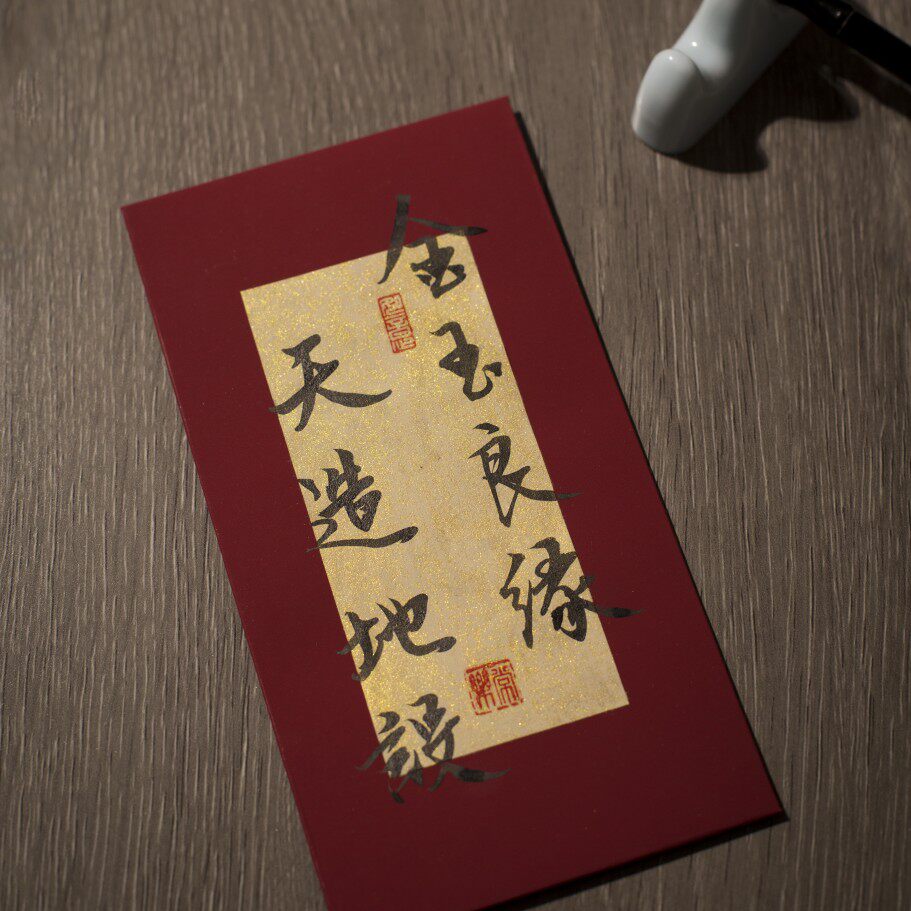 金玉良缘
天造地設